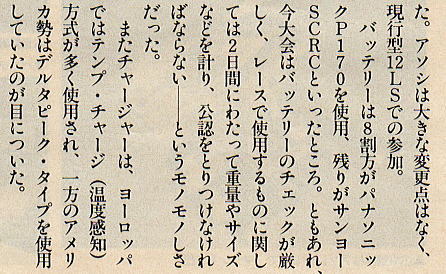 た。アソシは大きな変更点はなく、
現行型12LSでの参加。
　バッテリーは8割方がパナソニッ
クP170を使用、残りがサンヨー
SCRCといったところ。ともあれ、
今大会はバッテリーのチェックが厳
しく、レースで使用するものに関し
ては2日間にわたって重量やサイズ
などを計り、公認をとりつけなけれ
ばならない——というモノモノしさ
だった。
　またチャージャーは、ヨーロッパ
ではテンプ・チャージ（温度感知）
方式が多く使用され、一方のアメリ
カ勢はデルタピーク・タイプを使用
していたのが目についた。